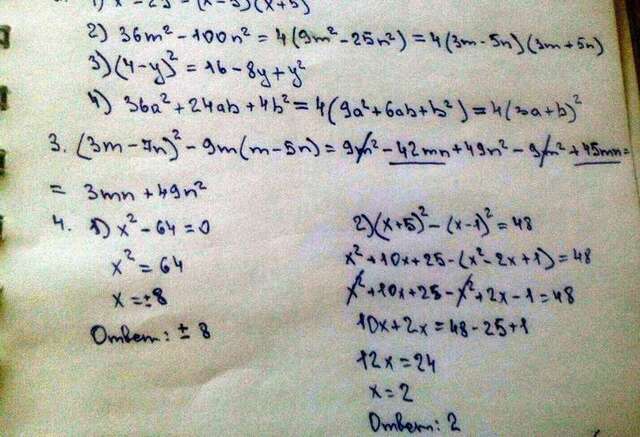 1) x² - 25 = (x-5)(x+5)
2) 36m² - 100n² = 4(9m² - 25n²) = 4(3m - 5n)(3m + 5n)
3) (4-y)² = 16 - 8y + y²
4) 36a² + 24ab + 4b² = 4(9a² + 6ab + b²) = 4(3a + b)²
3. (3m - 7n)² - 9m(m - 5n) = 9m² - 42mn + 49n² - 9m² + 45mn =
= 3mn + 49n²
4. 1) x² - 64 = 0
x² = 64
x = ±8
Ответ: ± 8
2) (x+5)² - (x-1)² = 48
x² + 10x + 25 - (x² - 2x + 1) = 48
x² + 10x + 25 - x² + 2x - 1 = 48
10x + 2x = 48 - 25 + 1
12x = 24
x = 2
Ответ: 2